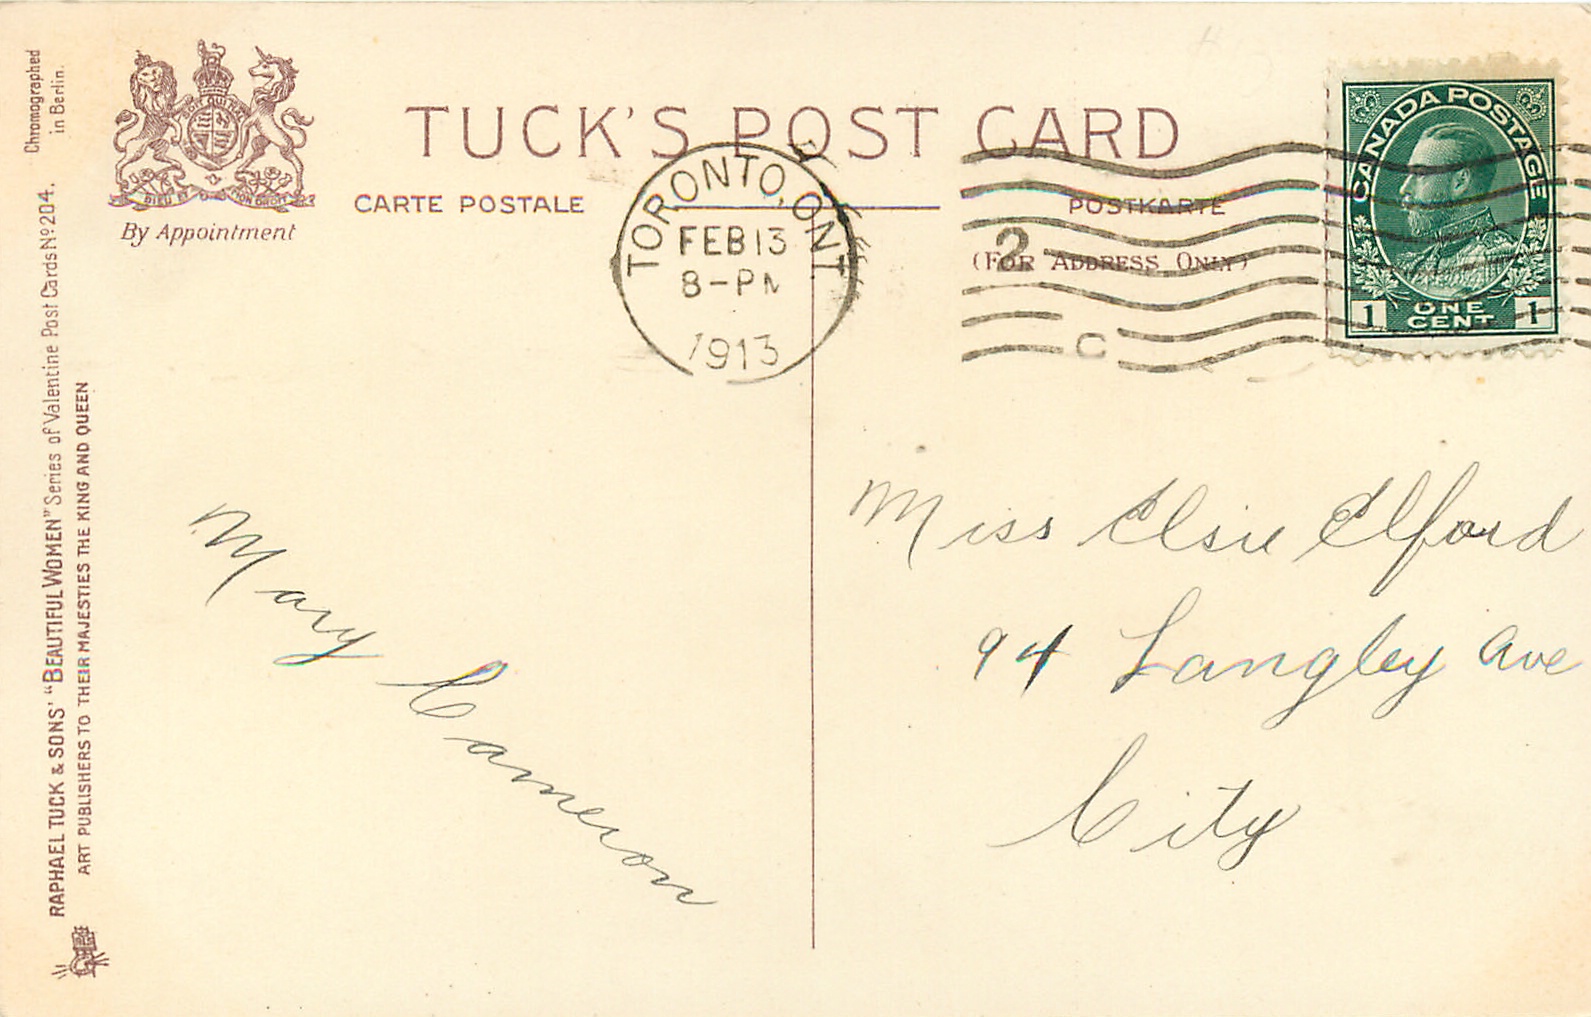 Chromographed
in Berlin.
RAPHAEL TUCK & SONS' "BEAUTIFUL WOMEN" Series of Valentine Post Cards Nº 204.
ART PUBLISHERS TO THEIR MAJESTIES THE KING AND QUEEN
DIEU ET MON DROIT
By Appointment
TUCK'S POST CARD
CARTE POSTALE
POSTKARTE
(FOR ADDRESS ONLY)
TORONTO, ONT
FEB 13
8-PM
1913
2
C
CANADA POSTAGE
1 ONE CENT 1
Mary Cameron
Miss Elsie Elford
94 Langley Ave
City